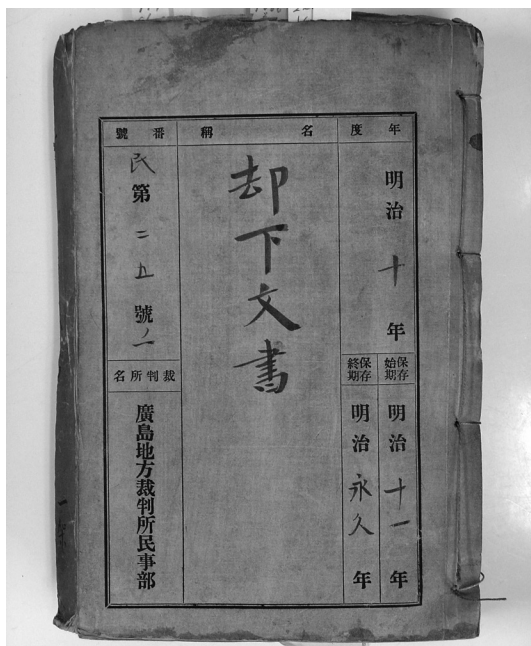 年度
明治十年
保存始期
明治十一年
保存終期
明治永久年
名稱
却下文書
番號
民第二五號ノ一
裁判所名
廣島地方裁判所民事部